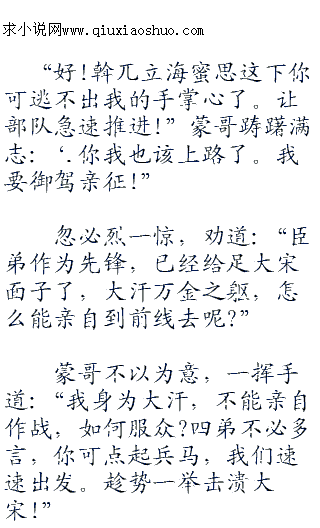 求小说网www.qiuxiaoshuo.com
“好!斡兀立海蜜思这下你
可逃不出我的手掌心了。让
部队急速推进!”蒙哥踌躇满
志:‘.你我也该上路了。我
要御驾亲征!”
忽必烈一惊，劝道:“臣
弟作为先锋，已经给足大宋
面子了，大汗万金之躯，怎
么能亲自到前线去呢?”
蒙哥不以为意，一挥手
道:“我身为大汗，不能亲自
作战，如何服众?四弟不必多
言，你可点起兵马，我们速
速出发。趁势一举击溃大
宋!”